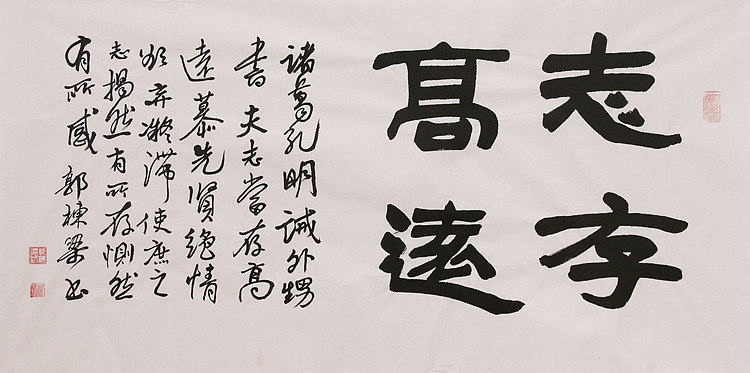 志存
高遠
諸葛孔明誡外甥
書夫志當存高
遠慕先賢絕情
欲弃凝滯使庶之
志揭然有所存惻然
有所感郭棟梁書